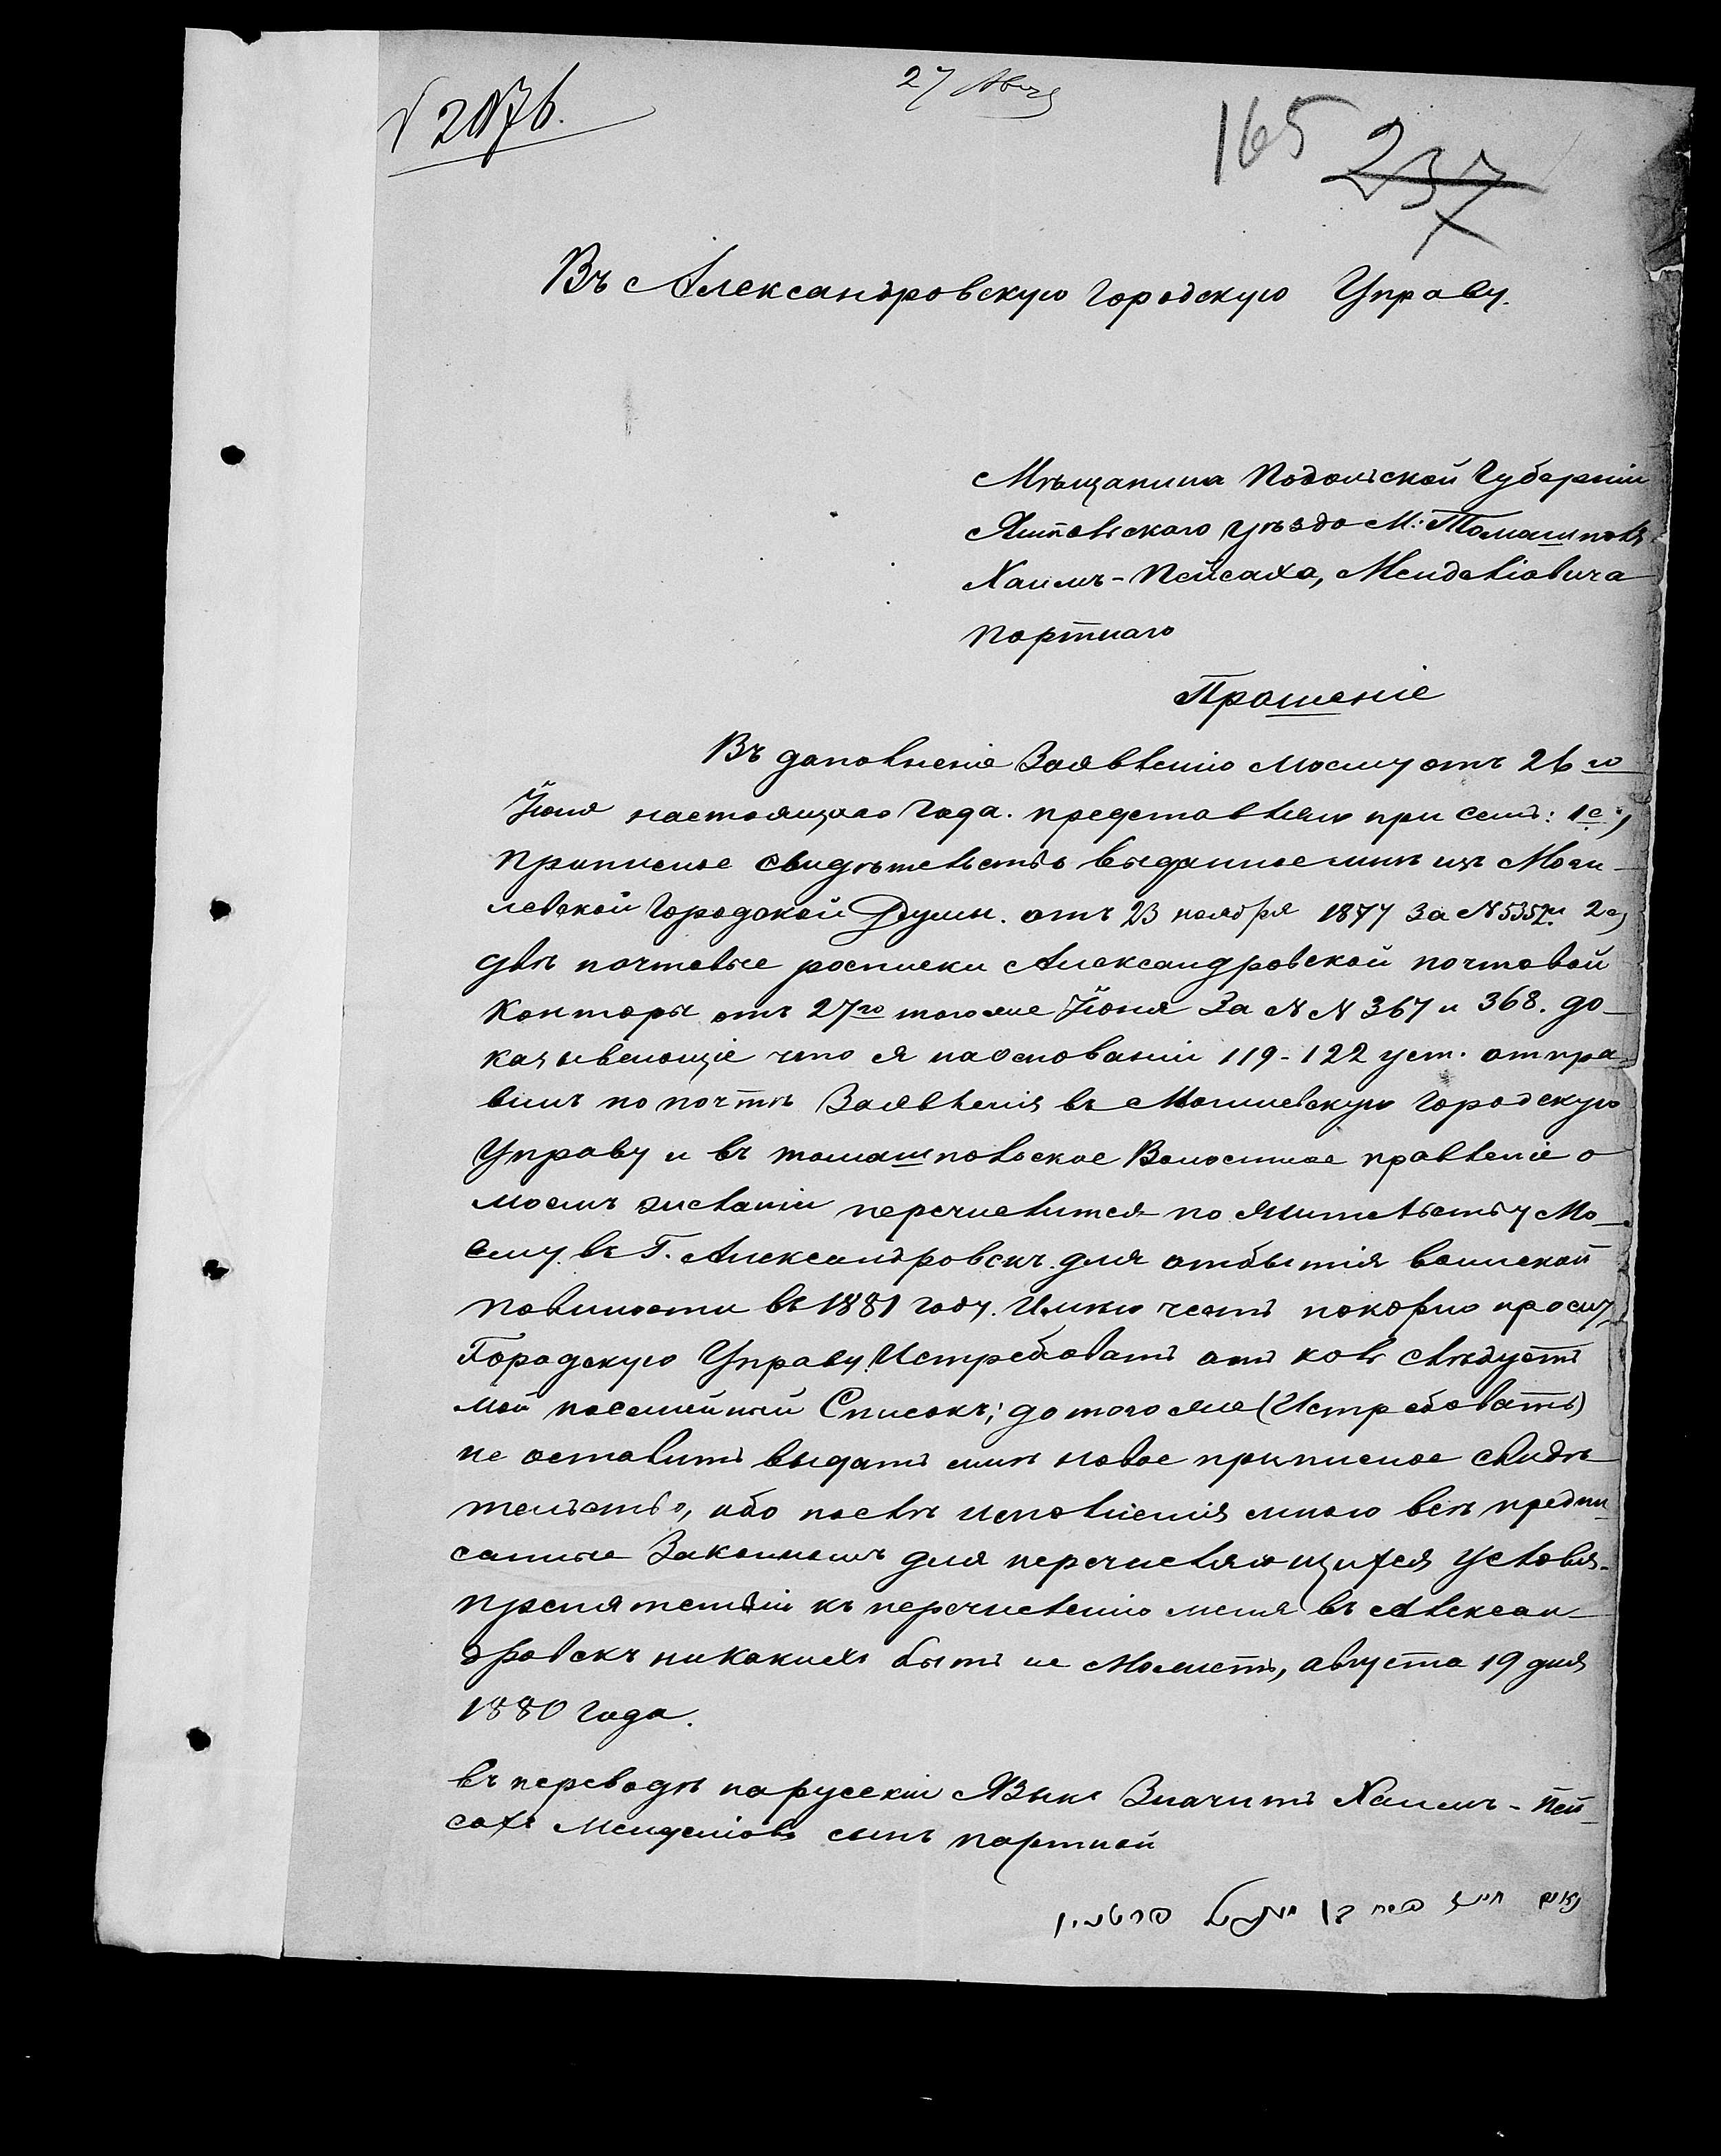 27 Авгу
№ 2076.
165 237
Въ Александровскую Городскую Управу.
Мѣщанина Подольской Губерніи
Ямпольскаго уѣзда М: Томашполя
Хаимъ-Пейсаха, Менделіовича
Портнаго
Прошеніе
Въ дополненіе Заявленію моему отъ 26 го
Іюня настоящаго года. представляю при семъ: 1е,
приписное свидѣтельство выданное мнѣ изъ Моги-
левской Городской Думы. отъ 23 ноября 1877 за № 5352 и 2е,
двѣ почтовые росписки Александровской почтовой
Конторы отъ 27го того же Іюня За №№ 367 и 368. до-
казывающіе что я на основаніи 119-122 уст. отпра-
вилъ по почтѣ Заявленія въ Могилевскую Городскую
Управу и въ томашпольское Волостное правленіе о
моемъ желаніи перечислится по жительству Мо-
ему. въ Г. Александровскъ. для отбытія воинской
повинности въ 1881 году. Имѣю честь покорно просить
Городскую Управу Истребовать отъ ковъ слѣдуетъ
мой посемейный Списокъ; до того же (Истребовать)
не оставить выдать мнѣ новое приписное свидѣ-
тельство, ибо послѣ исполненія мною всѣ предпи-
санные Закономъ для перечисляющихся условія
препятствій къ перечисленію меня въ Алексан-
дровскъ никакихъ быть не Можетъ, августа 19 дня
1880 года.
въ переводѣ на русскій Языкъ Значитъ Хаимъ-Пей-
сахъ Менделіовъ сынъ портной
נאום חיים פסח בן מענדל פורטנוי